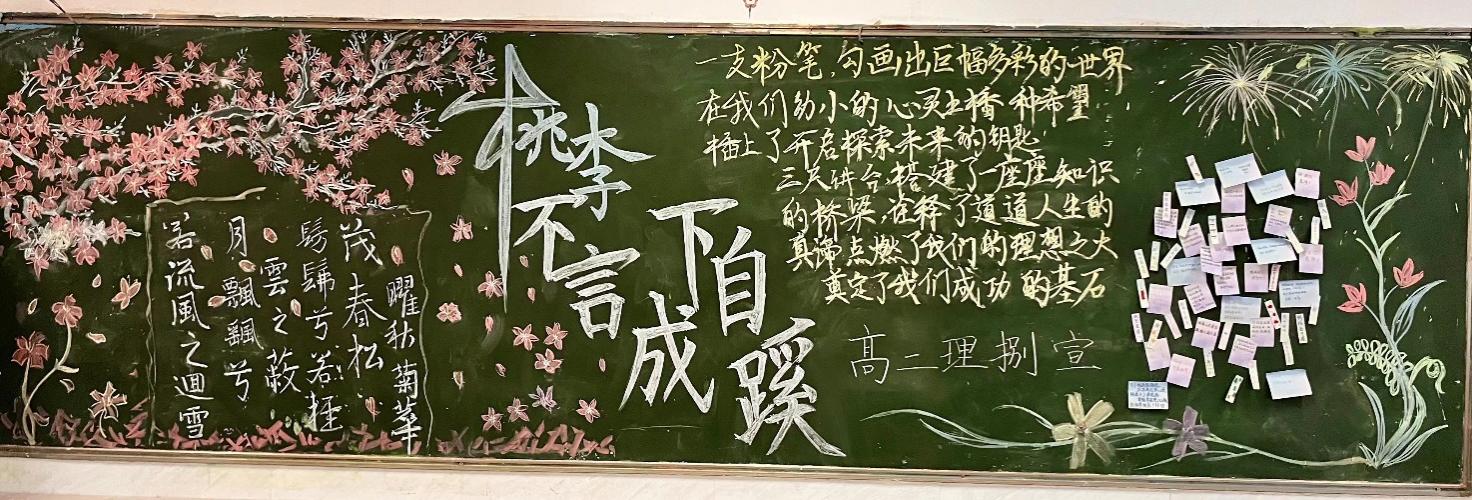 曜秋菊華
茂春松
髣髴兮若輕
雲之蔽
月飄颻兮
若流風之迴雪
桃李不言
下自成蹊
一支粉笔,勾画出巨幅多彩的世界
在我们幼小的心灵上播种希望
插上了开启探索未来的钥匙
三尺讲台,搭建了一座座知识
的桥梁,诠释了道道人生的
真谛点燃了我们的理想之火
奠定了我们成功的基石
高二理捌宣